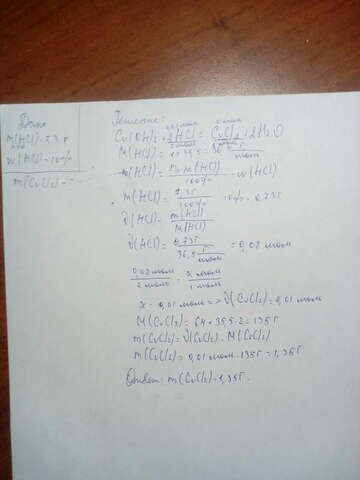 Дано
m(HCl)=7,3 г
w(HCl)=10%
m(CuCl2)-?
Решение:
0,02 моль x моль
Cu(OH)2+2HCl=CuCl2+2H2O
2 моль 1 моль
M(HCl)=1+35,5=36,5 г/моль
100%
m(HCl)=7,3г/100% · 10%=0,73г
ν(HCl)=m(HCl)/M(HCl)
ν(HCl)=0,73г/36,5 г/моль=0,02 моль
0,02 моль/2 моль=x моль/1 моль
x=0,01 моль=>ν(CuCl2)=0,01 моль
M(CuCl2)=64+35,5·2=135г
m(CuCl2)=ν(CuCl2)·M(CuCl2)
m(CuCl2)=0,01 моль·135г=1,35г
Ответ: m(CuCl2)=1,35г.